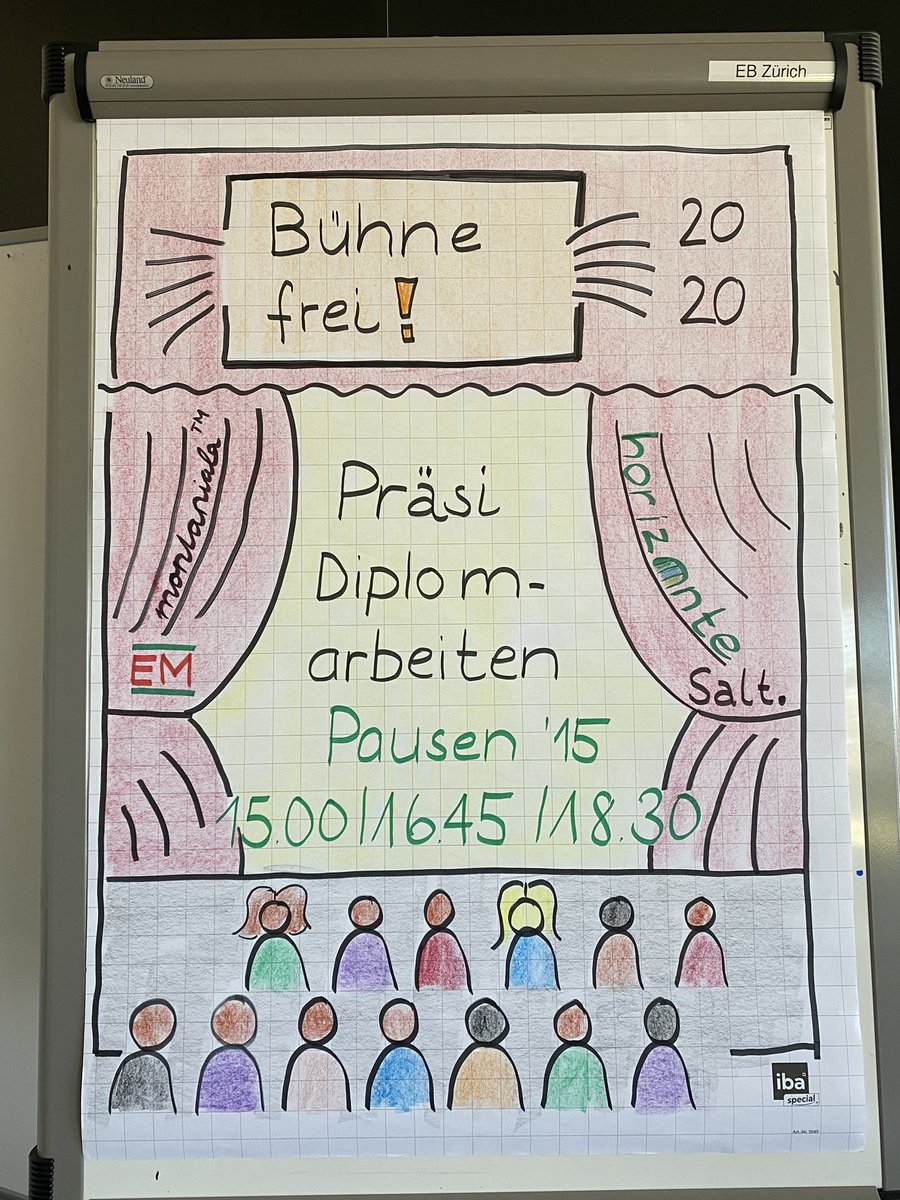 Neuland
EB Zürich
Bühne
frei!
20
20
montaniala™
horizonnte
EM
Salt.
Präsi
Diplom-
arbeiten
Pausen '15
15.00/16.45/18.30
iba
special
Art.-Nr. 3049